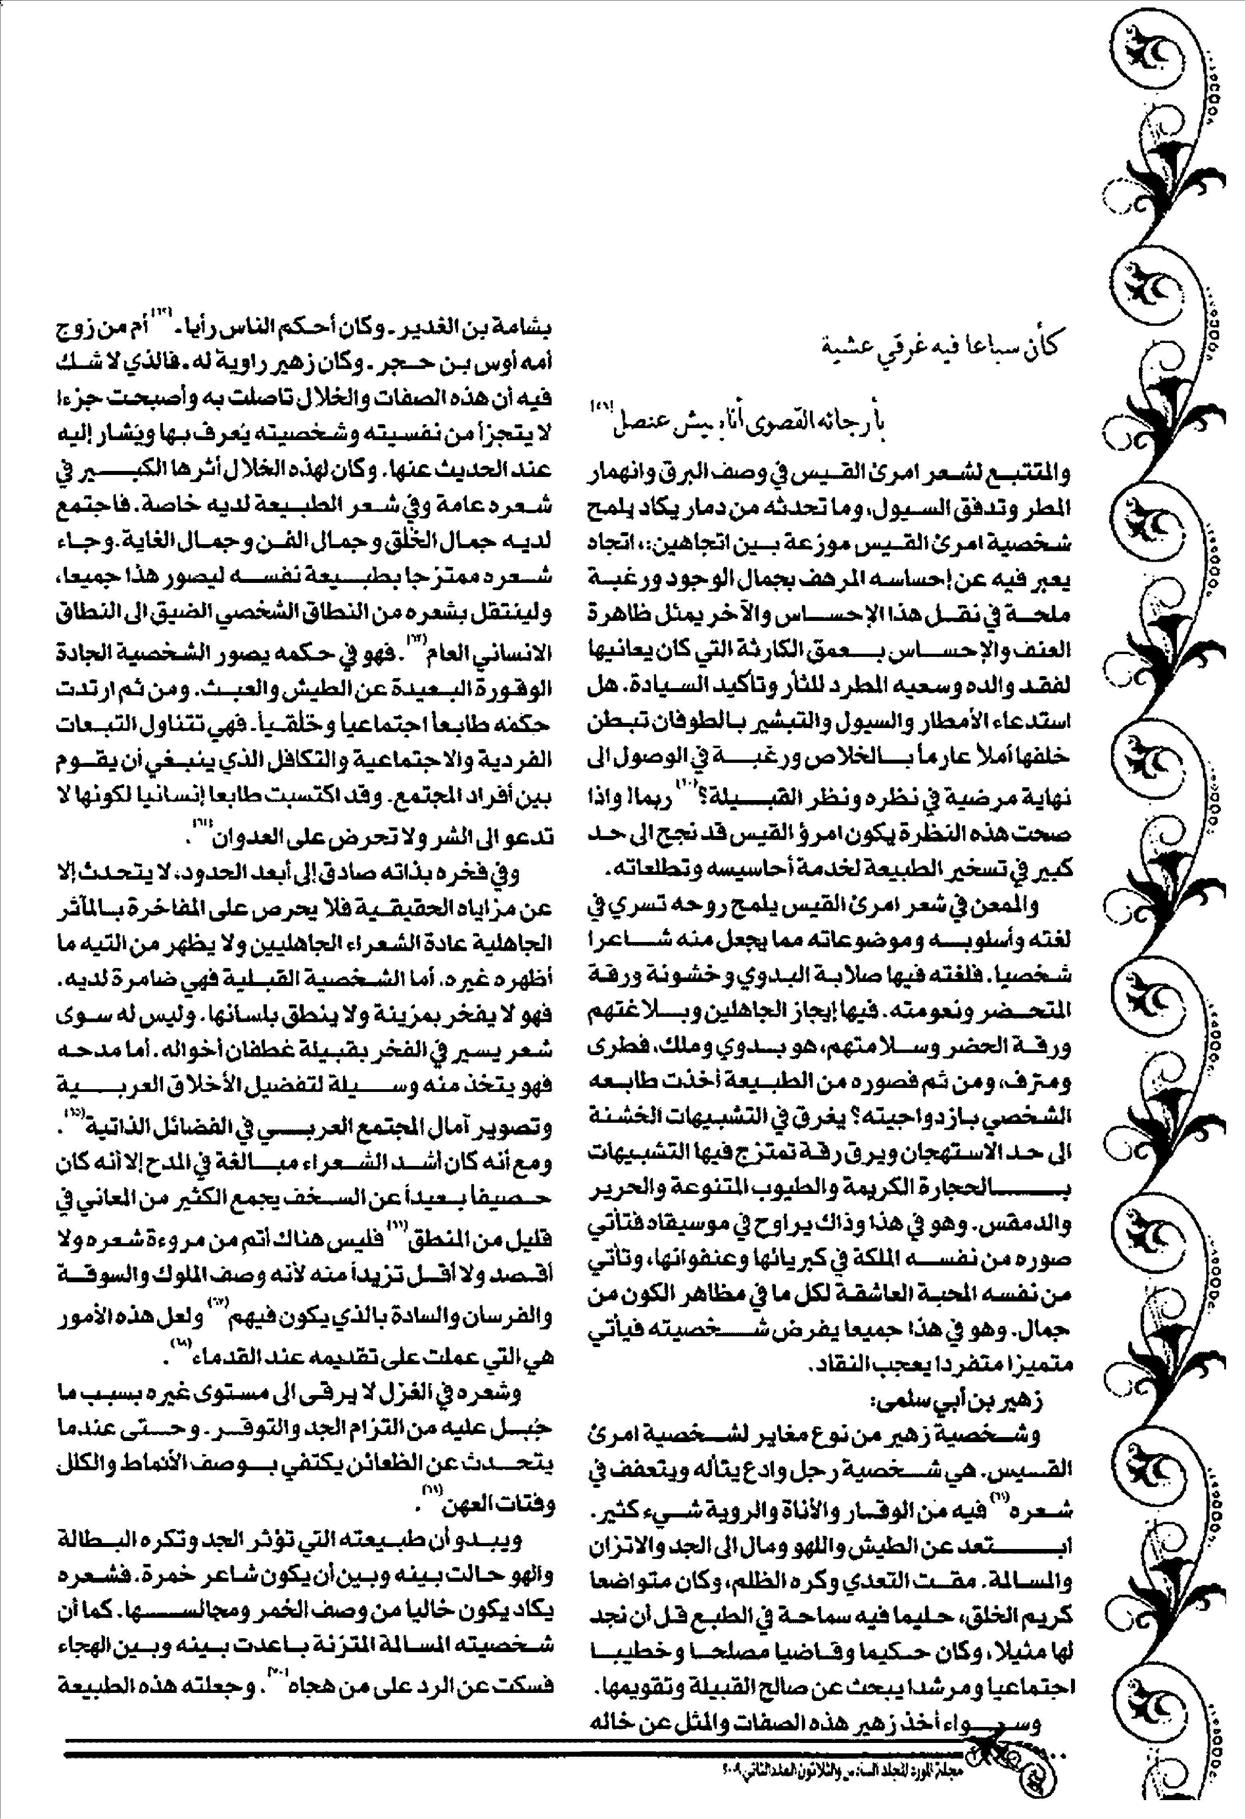 كأن سباعا فيه غرقي عشية
بأرجائه القصوى أنابيش عنصل(٤٩)
والمتتبع لشعر امرئ القيس في وصف البرق وانهمار
المطر وتدفق السيول، وما تحدثه من دمار يكاد يلمح
شخصية امرئ القيس موزعة بين اتجاهين:، اتجاه
يعبر فيه عن إحساسه المرهف بجمال الوجود ورغبة
ملحة في نقل هذا الإحساس والآخر يمثل ظاهرة
العنف والإحساس بعمق الكارثة التي كان يعانيها
لفقد والده وسعيه المطرد للثأر وتأكيد السيادة. هل
استدعاء الأمطار والسيول والتبشير بالطوفان تبطن
خلفها أملاً عارماً بالخلاص ورغبة في الوصول الى
نهاية مرضية في نظره ونظر القبيلة؟ ربما! واذا
صحت هذه النظرة يكون امرؤ القيس قد نجح الى حد
كبير في تسخير الطبيعة لخدمة أحاسيسه وتطلعاته.
والممعن في شعر امرئ القيس يلمح روحه تسري في
لغته وأسلوبه وموضوعاته مما يجعل منه شاعرا
شخصيا. فلغته فيها صلابة البدوي وخشونة ورقة
المتحضر ونعومته. فيها إيجاز الجاهلين وبلاغتهم
ورقة الحضر وسلامتهم، هو بدوي وملك، فطرى
ومترف، ومن ثم فصوره من الطبيعة أخذت طابعه
الشخصي بازدواجيته؟ يغرق في التشبيهات الخشنة
الى حد الاستهجان ويرق رقة تمتزج فيها التشبيهات
بالحجارة الكريمة والطيوب المتنوعة والحرير
والدمقس. وهو في هذا وذاك يراوح في موسيقاه فتأتي
صوره من نفسه الملكة في كبريائها وعنفوانها، وتأتي
من نفسه المحبة العاشقة لكل ما في مظاهر الكون من
جمال. وهو في هذا جميعا يفرض شخصيته فيأتي
متميزا متفردا يعجب النقاد.
زهير بن أبي سلمى:
وشخصية زهير من نوع مغاير لشخصية امرئ
القيس. هي شخصية رجل وادع يتأله ويتعفف في
شعره(٦١) فيه من الوقار والأناة والروية شيء كثير.
ابتعد عن الطيش واللهو ومال الى الجد والاتزان
والمسالمة. مقت التعدي وكره الظلم، وكان متواضعا
كريم الخلق، حليما فيه سماحة في الطبع قل أن نجد
لها مثيلا، وكان حكيما وقاضيا مصلحا وخطيبا
اجتماعيا ومرشدا يبحث عن صالح القبيلة وتقويمها.
وسواء أخذ زهير هذه الصفات والمثل عن خاله
بشامة بن الغدير. وكان أحكم الناس رأيا.(٦٢) أم من زوج
أمه أوس بن حجر. وكان زهير راوية له. فالذي لا شك
فيه أن هذه الصفات والخلال تاصلت به وأصبحت جزءا
لا يتجزأ من نفسيته وشخصيته يُعرف بها ويُشار إليه
عند الحديث عنها. وكان لهذه الخلال أثرها الكبير في
شعره عامة وفي شعر الطبيعة لديه خاصة. فاجتمع
لديه جمال الخُلق وجمال الفن وجمال الغاية. وجاء
شعره ممتزجا بطبيعة نفسه ليصور هذا جميعا،
ولينتقل بشعره من النطاق الشخصي الضيق الى النطاق
الانساني العام(٦٣). فهو في حكمه يصور الشخصية الجادة
الوقورة البعيدة عن الطيش والعبث. ومن ثم ارتدت
حكمه طابعاً اجتماعياً وخلقياً. فهي تتناول التبعات
الفردية والاجتماعية والتكافل الذي ينبغي أن يقوم
بين أفراد المجتمع. وقد اكتسبت طابعا إنسانيا لكونها لا
تدعو الى الشر ولا تحرض على العدوان(٦٤).
وفي فخره بذاته صادق إلى أبعد الحدود، لا يتحدث إلا
عن مزاياه الحقيقية فلا يحرص على المفاخرة بالمآثر
الجاهلية عادة الشعراء الجاهليين ولا يظهر من التيه ما
أظهره غيره. أما الشخصية القبلية فهي ضامرة لديه.
فهو لا يفخر بمزينة ولا ينطق بلسانها. وليس له سوى
شعر يسير في الفخر بقبيلة غطفان أخواله. أما مدحه
فهو يتخذ منه وسيلة لتفضيل الأخلاق العربية
وتصوير آمال المجتمع العربي في الفضائل الذاتية(٦٥).
ومع أنه كان أشد الشعراء مبالغة في المدح إلا أنه كان
حصيفاً بعيداً عن السخف يجمع الكثير من المعاني في
قليل من المنطق(٦٦) فليس هناك أتم من مروءة شعره ولا
أقصد ولا أقل تزيداً منه لأنه وصف الملوك والسوقة
والفرسان والسادة بالذي يكون فيهم(٦٧) ولعل هذه الأمور
هي التي عملت على تقديمه عند القدماء(٦٨).
وشعره في الغزل لا يرقى الى مستوى غيره بسبب ما
جُبل عليه من التزام الجد والتوقر. وحتى عندما
يتحدث عن الظعائن يكتفي بوصف الأنماط والكلل
وفتات العهن(٦٩).
ويبدو أن طبيعته التي تؤثر الجد وتكره البطالة
والهو حالت بينه وبين أن يكون شاعر خمرة. فشعره
يكاد يكون خاليا من وصف الخمر ومجالسها. كما أن
شخصيته المسالمة المتزنة باعدت بينه وبين الهجاء
فسكت عن الرد على من هجاه(٧٠). وجعلته هذه الطبيعة
مجلة المورد المجلد السادس والثلاثون العدد الثاني ٢٠٠٩